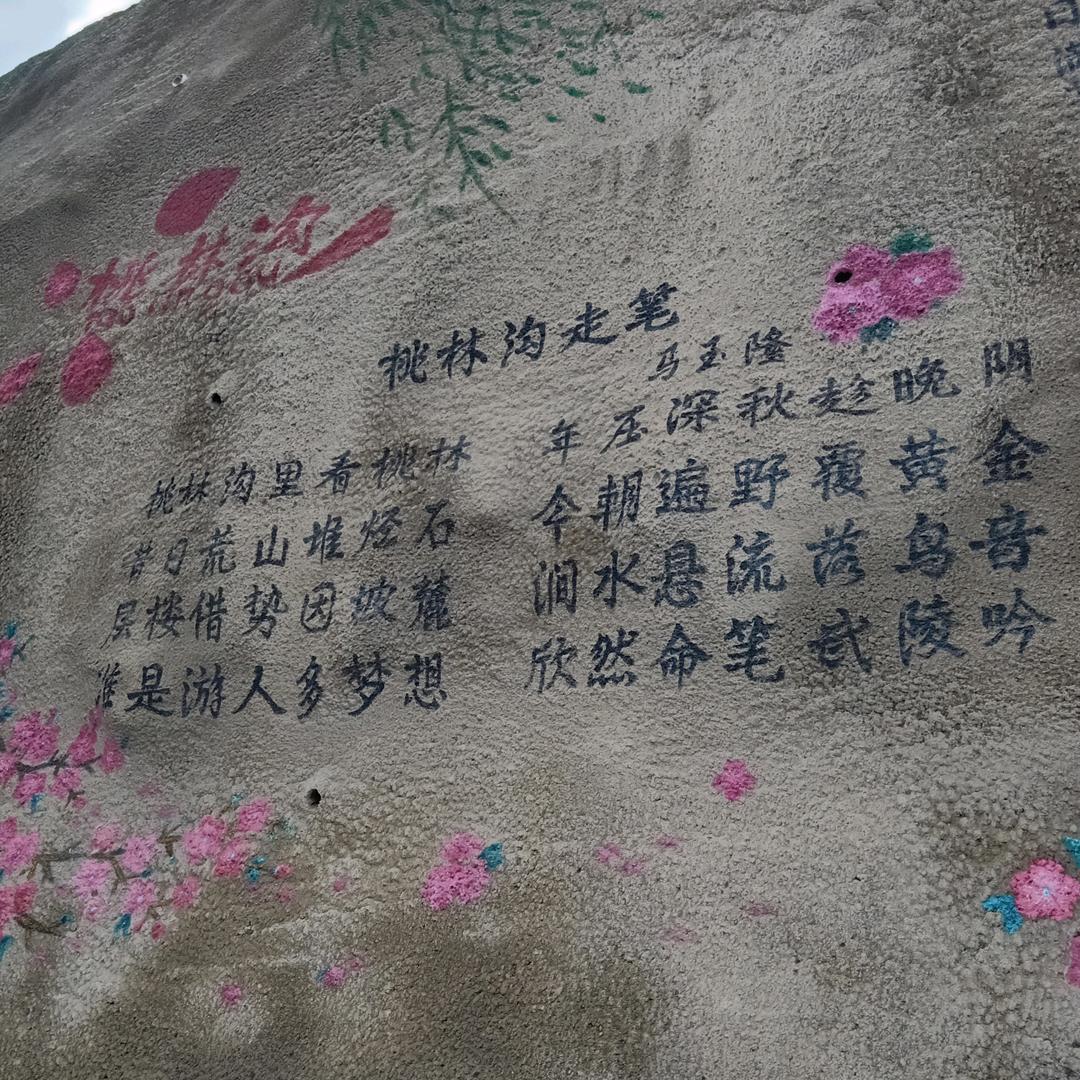 桃林沟
TAO LIN GOU
桃林沟走笔
马玉隆
桃林沟里看桃林
年 深秋趁晚阴
昔日荒山堆烃石
今朝遍野覆黄金
层楼借势因坡麓
涧水悬流落鸟音
是游人多梦想
欣然命笔武陵吟